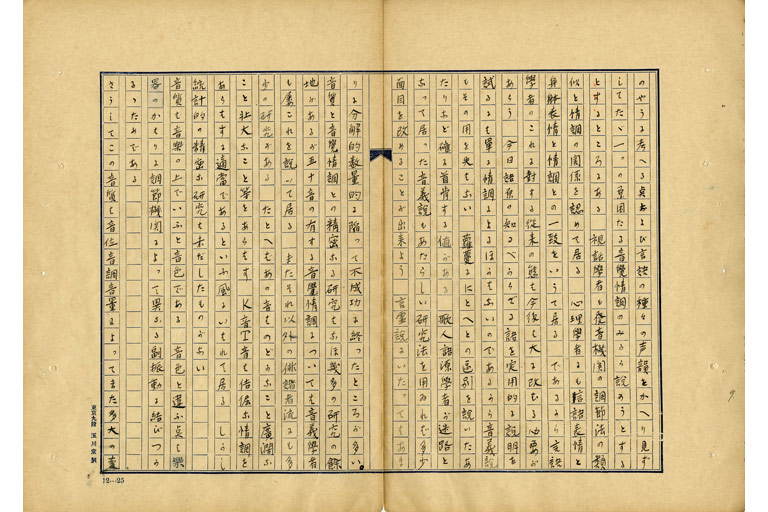 のやうな考へる点および言語の種々の声韻とかへり見ず
してたゞ一つの専用たる音覚情調のみから説かうとする
とするところにある 視話学者も発音機関の調節法の類
似と情調の関係を認めて居る 心理学者も言語表情と
身体表情と情調との一致をいうて居る であるから言語
学者のこれに対する従来の態も今後も大に改むる心要が
あらう 今日語原の知るべからざる語を実用的に説明を
試みるも単に情調によるほうもないのであるから音義説
もその用を失もない 蘿蔓るにとへとの区別を説いたあ
たりほど確に首肯する値がある 歌人語源学者が迷路と
なって居った音義説もあたらしい研究法を用ゐれば多少
面目を改めることが出来よう 言霊説にいたってもあま
りに分解的数量的に陥って不成功に終ったところが多い。
音覚と音覚情調との精密なる研究もなほ幾多の研究の余
地があるが五十音の有する音覚情調についても音義学者
も屡これを説いて居る またそれ以外の俳諧者流にも多
少の研究がある たとへばあの音ものどかなこと広濶な
こと壮大なこと等をあらはす K音T音も佶倔な情調を
あらはするに適当であるといふ風にいはれて居る しかし
統計的の精密な研究も未だしたものがない
音質も音楽の上でいふと音色である 音色と違ふ点も楽
器のかはりに調節機関によって異なる副振動に結びつか
るゝためである
さうしてこの音質も音位音調音量によってまた多大の変
東京九段 玉川堂製
12—25